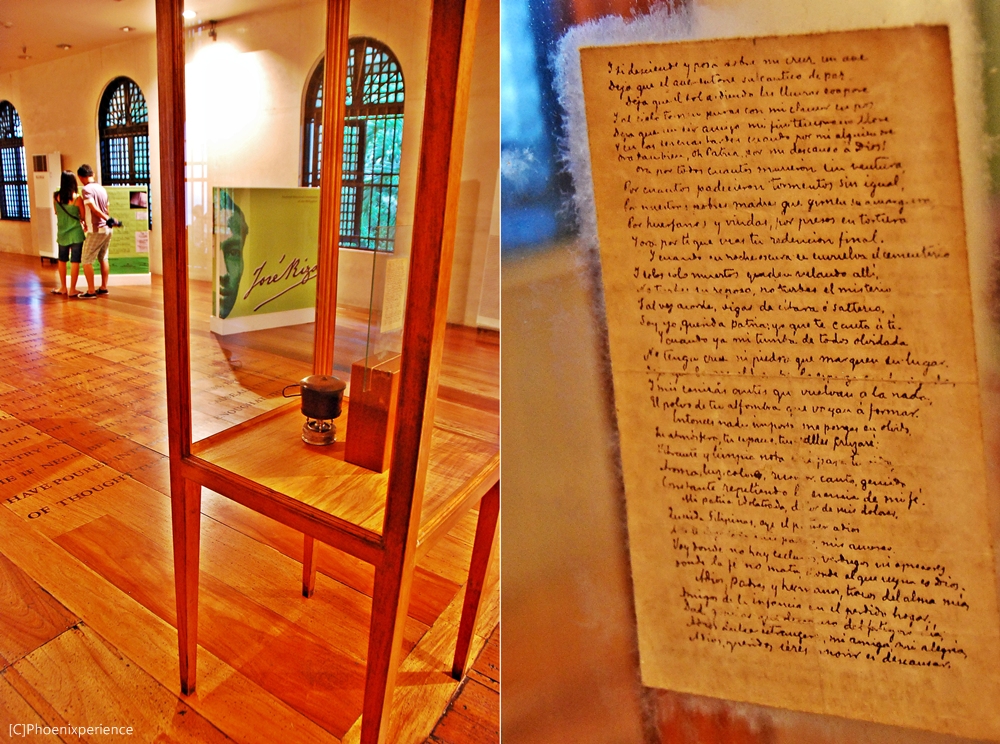 José Riza
HIM
NTRY
HAVE POURE
OF THOUGHT
[C]Phoenixperience
Y si desciende y posa sobre mi cruz un ave
Deja que el ave entone su cantico de paz.
Deja que el sol ardiendo las lluvias evapore
Y al cielo tornen puras con mi clamor en pos
Deja que un ser amigo mi fin temprano llore
Y en las serenas tardes cuando por mi alguien ore
Ora tambien, Oh Patria, por mi descanso á Dios!
Ora por todos cuantos murieron sin ventura
Por cuantos padecieron tormentos sin igual,
Por nuestras pobres madres que gimen su amargura
Por huerfanos y viudas, por presos en tortura
Y ora por ti que veas tu redencion final.
Y cuando en noche oscura se envuelva el cementerio
Y solos solo muertos queden velando alli,
No turbes su reposo, no turbes el misterio
Tal vez acordes oigas de citara ó salterio,
Soy yo, querida Patria, yo que te canto á ti.
Y cuando ya mi tumba de todos olvidada
No tenga cruz ni piedra que marquen su lugar.
Y mis cenizas antes que vuelvan a la nada,
El polvo de tu alfombra que vayan á formar.
Entonces nada importa me pongas en olvido,
Tu atmósfera, tu espacio, tus valles cruzaré.
Vibrante y limpia nota para tu
Aroma, luz, colores, rumor, canto, gemido
Constante repitiendo la esencia de mi fé.
Mi patria idolatrada, dolor de mis dolores,
Querida Filipinas, oye el postrer adios
mis amores.
Voy donde no hay esclavos, verdugos ni opresores,
donde la fé no mata, donde el que reyna es Dios.
Adios, Padres y hermanos, trozos del alma mia
Amigos de la infancia en el perdido hogar,
Dad gracias que descanso del fatigoso dia,
Adios, dulce extrangera, mi amiga, mi alegria,
Adios, queridos séres morir es descansar.